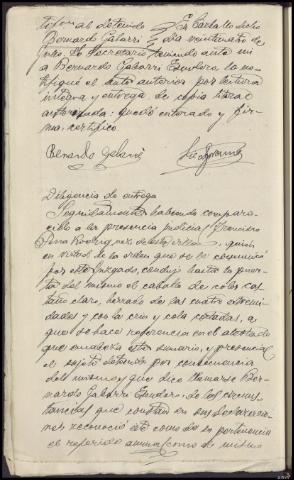 al detenido
Bernardo Gabarri día veintinueve de
Yo Secretario teniendo ante mi
a Bernardo Gabarri Escudero le no-
tifiqué el auto anterior por lectura
integra y entrega de copia literal
quedó enterado y fir-
ma: certifico
Benardo Gabarri
Diligencia de entrega
Seguidamente habiendo compare-
cido a la presencia judicial
Pena quien
en virtud de la orden que se le comunicó
por este Juzgado, condujo hasta la puerta
del mismo el caballo de color cas-
taño claro, herrado de las cuatro extremi-
dades y con la crin y cola cortadas, a
que se hace referencia en el atestado
que encabeza este sumario, y presente
el sujeto detenido por consecuencia
del mismo y que dice llamarse Ber-
nardo Gabarri Escudero, de las circuns-
tancias que constan en su declaracion
reconoció este como de su pertenencia
el referido animal, como de mismo